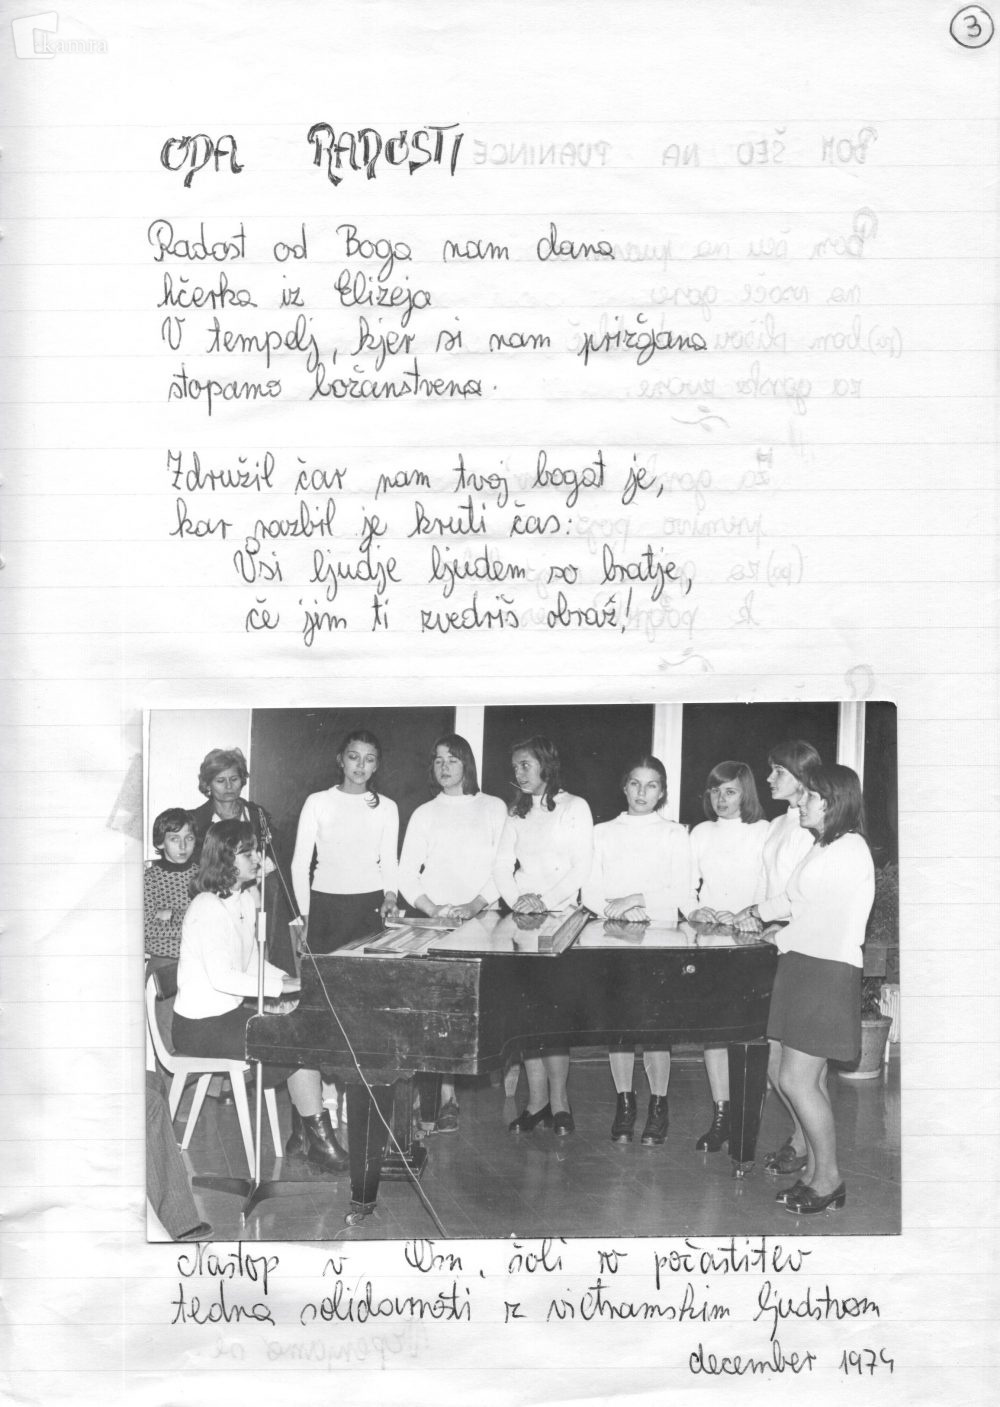 kamra
3
ODA RADOSTI
Radost od Boga nam dana
hčerka iz Elizeja
V tempelj, kjer si nam prižgana
stopamo božanstvena.
Združil čar nam tvoj bogat je,
kar razbil je kruti čas:
Vsi ljudje ljudem so bratje,
če jim ti zvedriš obraž!
Nastop v Osn. šoli v počastitev
tedna solidarnosti z vietnamskim ljudstvom
december 1974